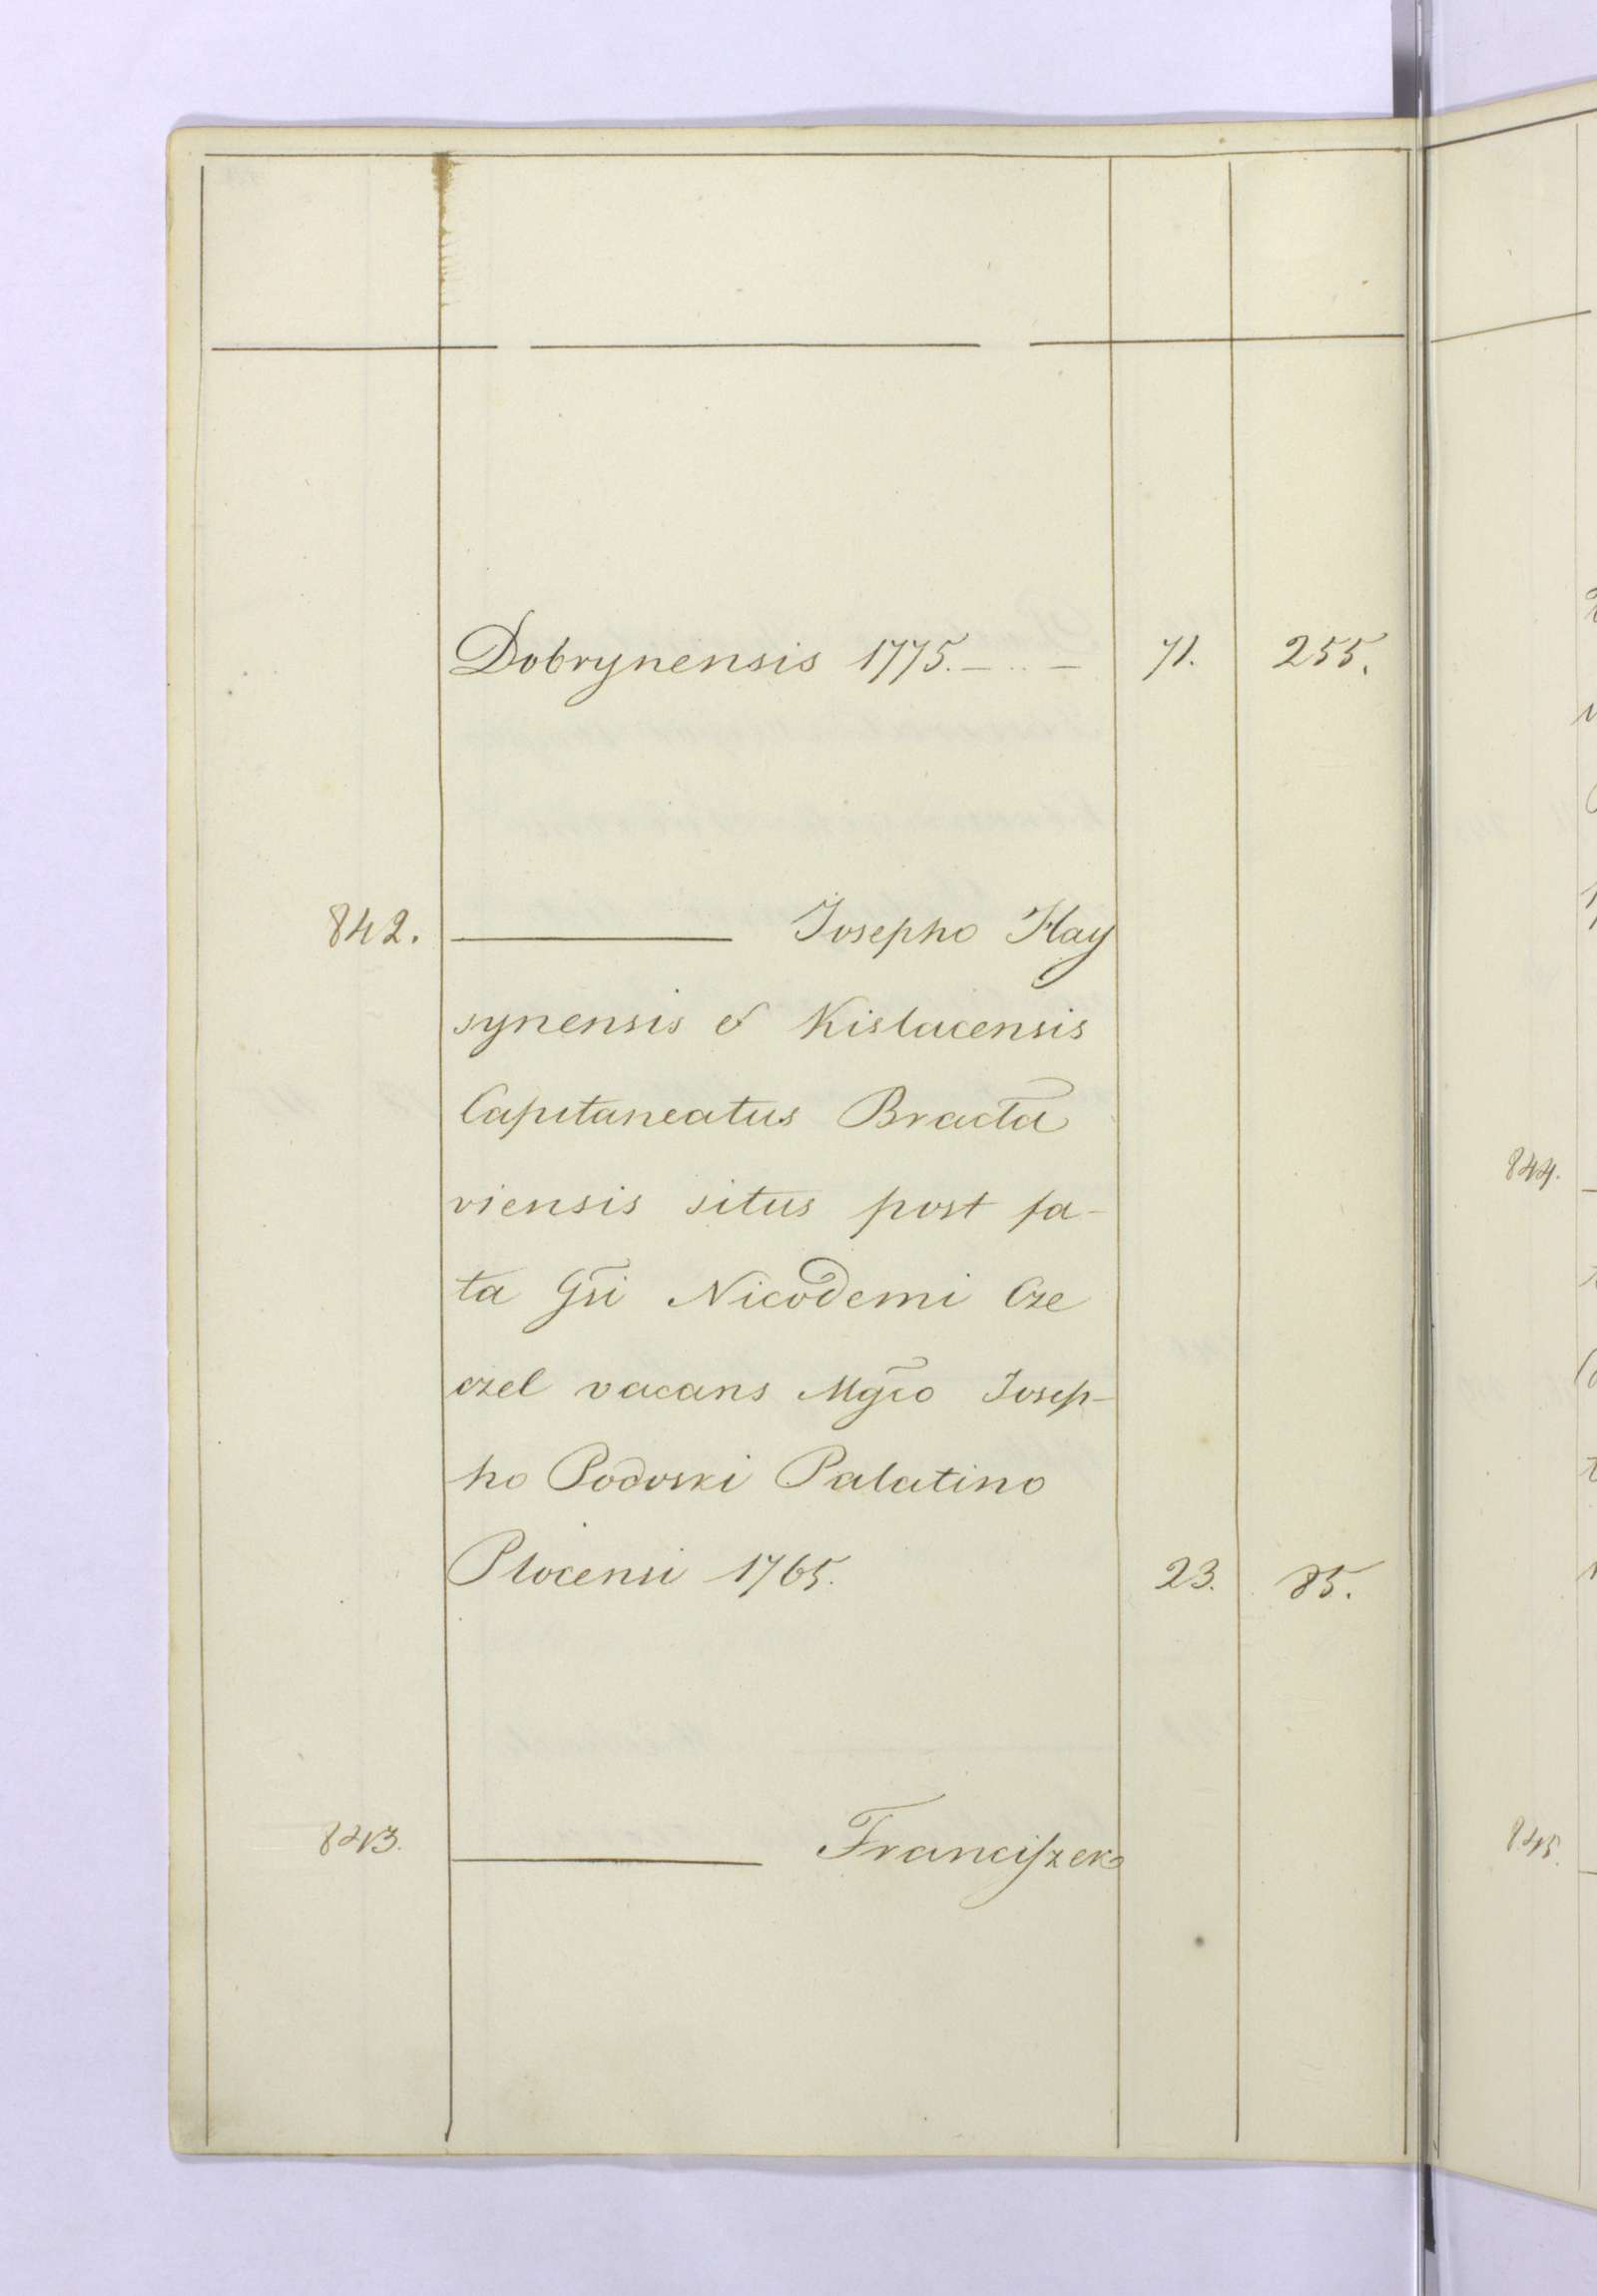 Dobrynensis 1775. — .. — 71. 255.
842. ——— Josepho Hay
synensis et Kislacensis
Capitaneatus Bracła
viensis situs post fa-
ta Gsi Nicodemi Cze
czel vacans Mgco Josep-
ho Podoski Palatino
Plocensi 1765. 23. 85.
843. ——— Franciszek
844.
845.